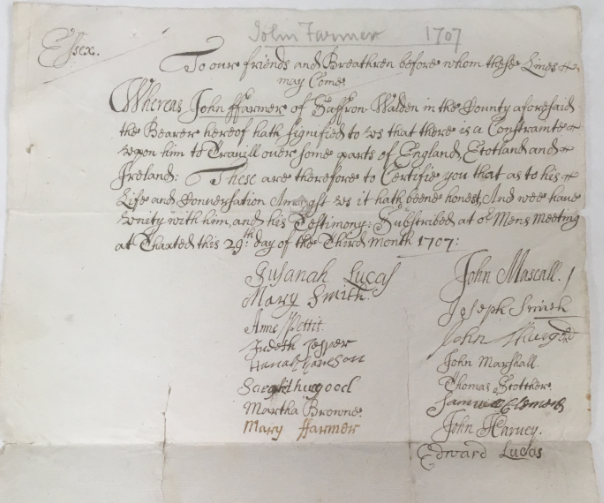 John Farmer 1707
Essex.
To our friends and Breathren before whom these Lines
may Come
Whereas John ffarmer of Saffron-Walden in the County aforesaid
the Bearer hereof hath signified to us that there is a Constrainte
upon him to Travill over some parts of England, Scotland and
Ireland: These are therefore to Certifie you that as to his
Life and Conversation Amongst us it hath beene honest, And wee have
Unity with him, and his Testimony: Subscribed at or Mens Meeting
at Thaxted this 29th day of the Third Month 1707:
Susanah Lucas
Mary Smith
Anne Pettit
Judeth
Martha Browne
Mary ffarmer
John Mascall
Joseph Smith
John
John Marshall
Thomas
Samuell
John Harvey.
Edward Lucas